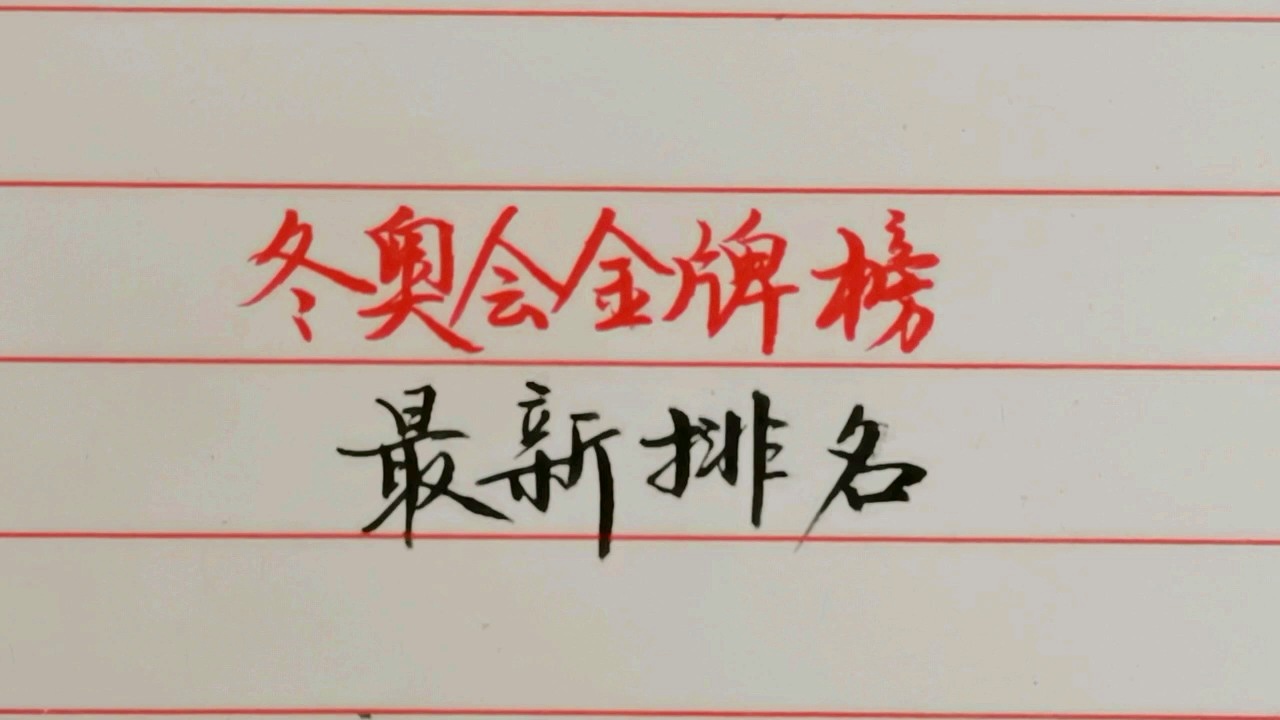 冬奥会金牌榜
最新排名